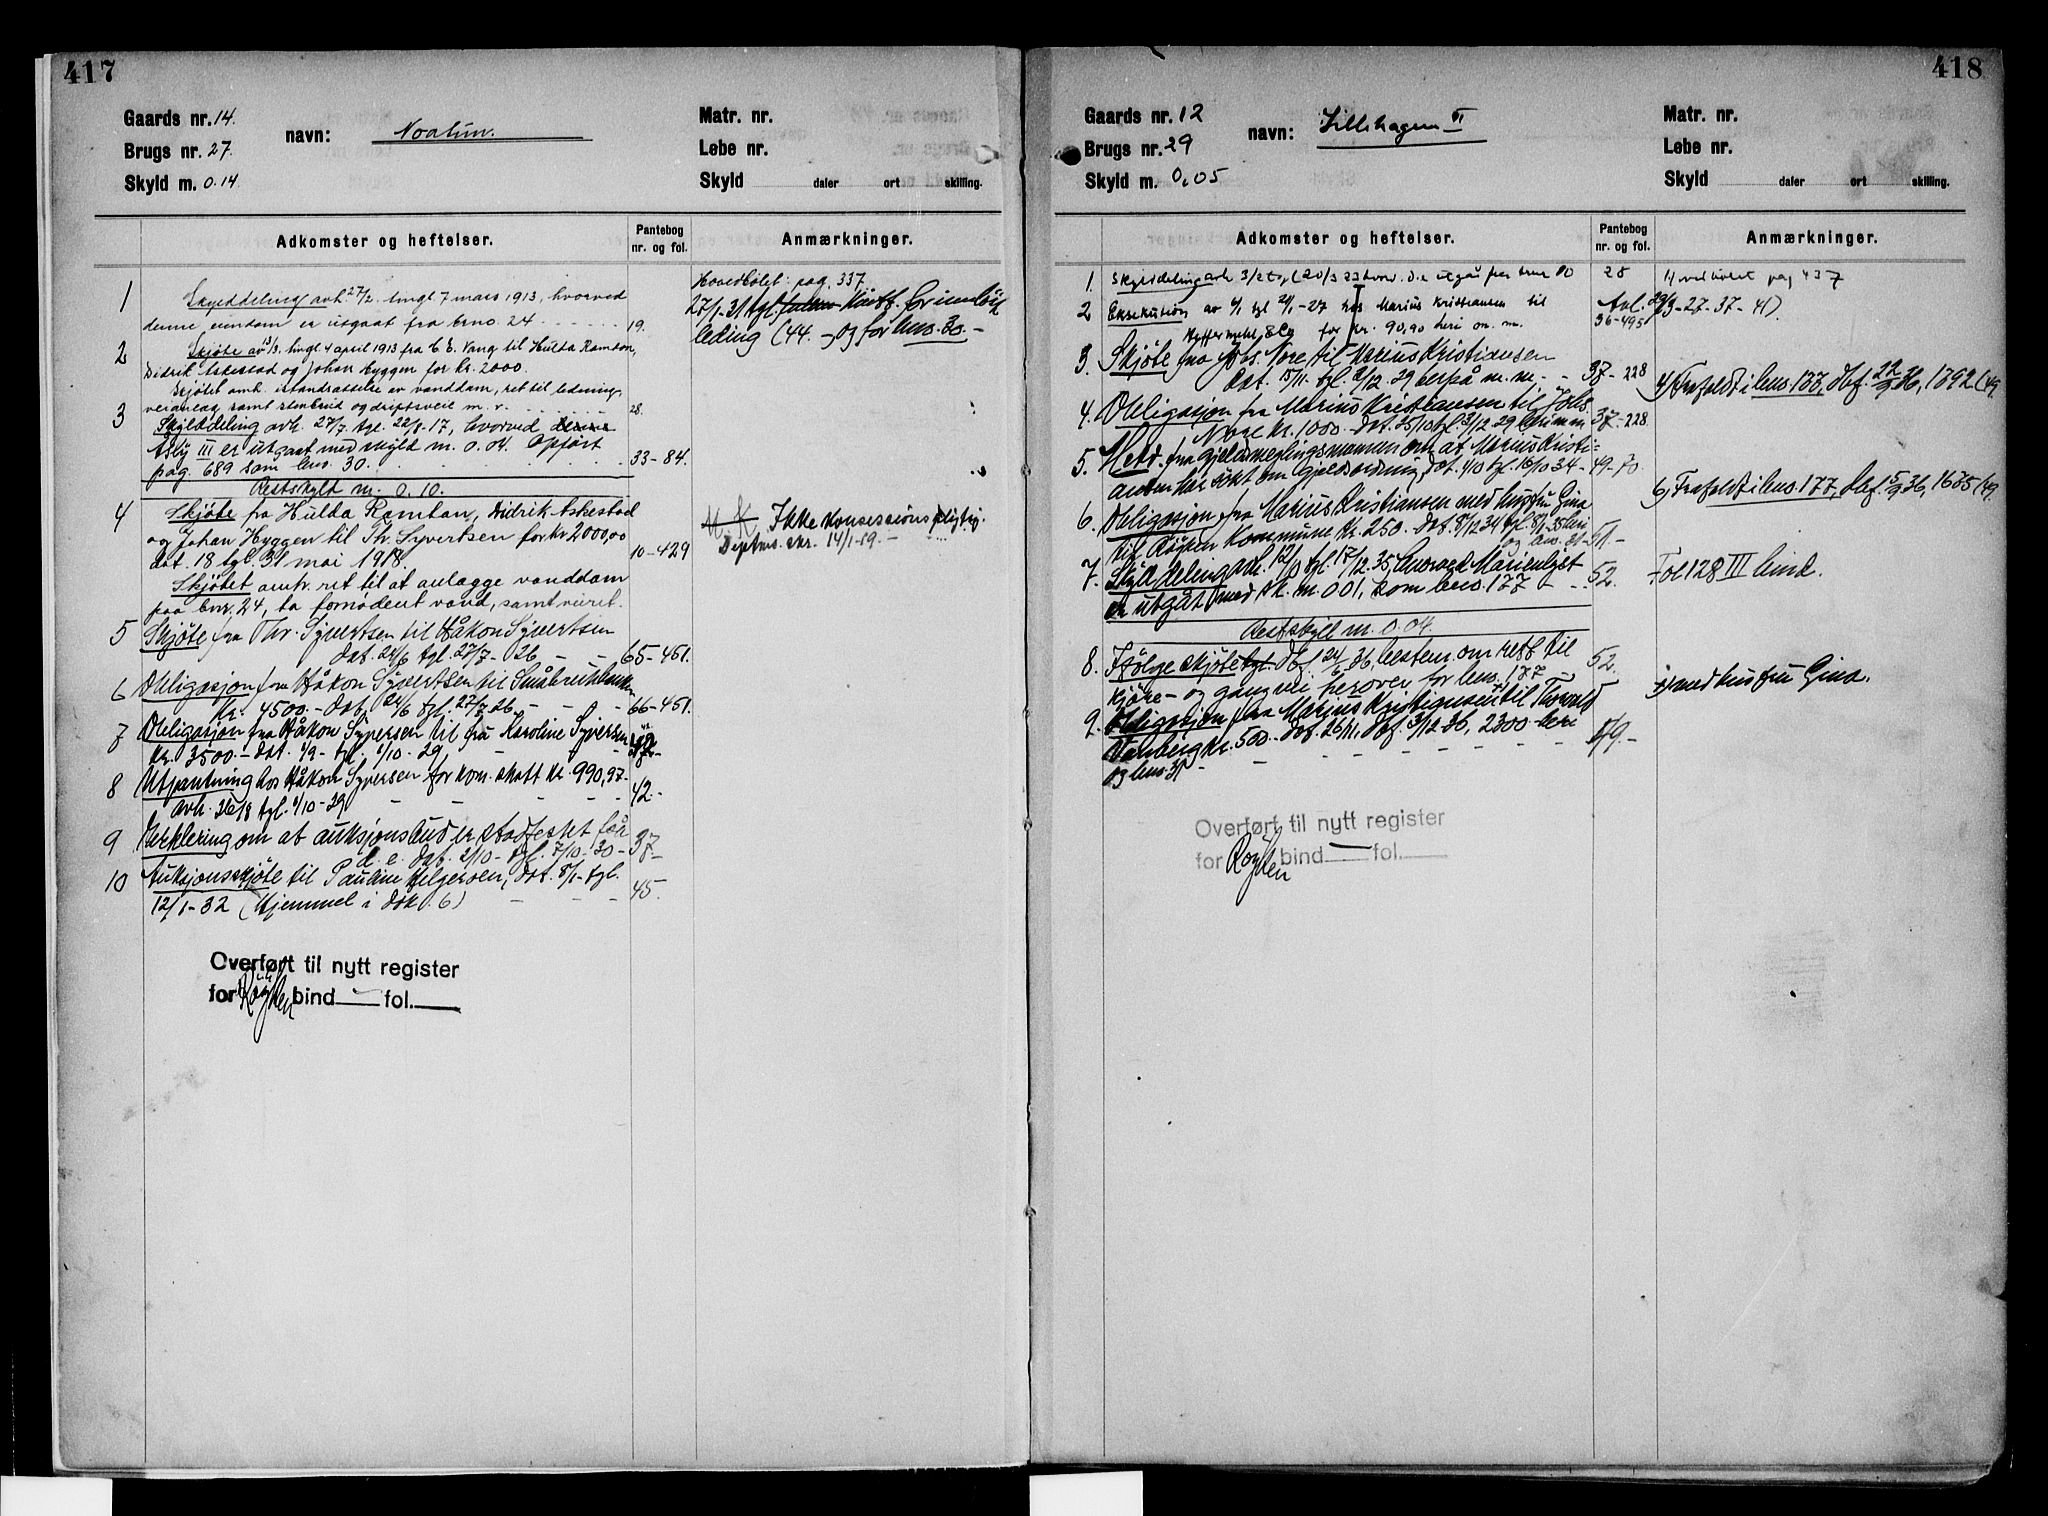 417
Gaards nr. 14.
Brugs nr. 27.
Skyld m. 0.14
navn: Noatun.
Matr. nr.
Løbe nr.
Skyld daler ort skilling.
Adkomster og heftelser.
Pantebog nr. og fol.
Anmærkninger.
1 Skylddeling avh. 27/2. tingl. 7 mars 1913, hvorved
denne eiendom er utgaat fra brno. 24 19.
2 Skjøte av 13/3. tingl. 4 april 1913 fra C. E. Vang til Hulda Ramton,
Didrik Askestad og Johan Hyggen for kr. 2000.
Skjøtet anh. istandsættelse av vanddam, ret til ledning,
veianlæg samt stenbrud og driftsvei m. v. 28.
3 Skylddeling avh. 27/7. tgl. 22/8-17, hvorved denne
Åsly III er utgaat med skyld m. 0.04. Opført
pag. 689 som bno. 30. 33-84.
Restskyld m. 0.10.
4 Skjøte fra Hulda Ramton, Didrik Askestad
og Johan Hyggen til Th. Syvertsen for kr 2000,00
dat. 18 tgl. 31 mai 1918. 10-429
Skjøtet anh. ret til at anlægge vanddam
paa bnr. 24, ta fornødent vand, samt veiret.
5 Skjøte fra Thr. Syvertsen til Håkon Syvertsen
dat. 24/6 tgl. 27/7-26 - - 65-451.
6 Obligasjon fra Håkon Syvertsen til Småbrukbanken
kr. 4500.- dat. 24/6 tgl. 27/7.26 - - - 66-451.
7 Obligasjon fra Håkon Syversen til fru Karoline Syversen
kr. 3500 - dat. 1/9 - tgl. 1/10. 29
8 Utpantning hos Håkon Syversen for kom. skatt kr. 990,97-
avh. 26/8 tgl. 1/10-29 - - - - - 42.-
9 Erklæring om at auksjonsbud er stadfestet får
d. e. dat. 2/10 - tgl. 7/10-30 - 37-
10 Auksjonsskjøte til Pauline Helgersen, dat. 8/1 - tgl.
12/1-32 (Hjemmel i dok. 6) - - - 45.
Hovedbølet: pag. 337.
27/1-31 tgl.
leding (44. - og for bno. 30.-
Ikke konsessionspligtig.
Deptms. skr. 14/1-19. -
Overført til nytt register
for Røyken bind fol.
418
Gaards nr. 12
Brugs nr. 29
Skyld m. 0,05
navn: Lillehagen II
Matr. nr.
Løbe nr.
Skyld daler ort skilling.
Adkomster og heftelser.
Pantebog nr. og fol.
Anmærkninger.
1. Skylddeling avh. 3/2 tgl. 20/3 23 hvorv. d.e. utgår fra bnr 10 28
2 Eksekution av 4/1 tgl 24/1-27 hos Marius Kristiansen til
for kr. 90,90 heri on. m. Avl. 36-495
3. Skjøte fra Johs. Nore til Marius Kristiansen
dat. 15/11. tgl. 2/12.29 herpå m. m. - 37-228
4. Obligasjon fra Marius Kristiansen til Johs.
Nore kr. 1000.- dat. 25/10 tgl. 2/12 29 heri m m 37-228.
5. Medd. fra gjeldsmeglingsmannen om at Marius Kristi-
ansen har søkt om gjeldsordning, dat. 4/10 tgl. 16/10 34 - 49-70.
6. Obligasjon fra Marius Kristiansen med hustru Gina
til Røyken Kommune kr. 250.- dat. 8/12 34 tgl. 8/1-35 heri
og bno. 31 - 51-
7. Skylddeling avh. 12/9 tgl. 17/12.35, hvorved Marienlyst
er utgått med sk. m. 001, som bno. 177 - - 52.
Restskyld m. 0.04.
8. Ifølge skjøte tgl. dbf. 24/6 36 bestem. om rett til
kjøre- og gangvei herover for bno. 177 52.
9. Obligasjon fra Marius Kristiansen x) til Thorvald
kr. 500.- dat. 26/11, dbf. 3/12 36, 2300 - heri
og bno. 31 - - - - - - 59.-
Hovedbølet pag 437
29/3-27-37-41).
4) Frafaldt i bno. 177, dbf. 22/9 36, 1792 (49.
6) Frafaldt i bno. 177, dbf. 5/9 36, 1685 (49.
Fol 128 III bind.
x) med hustru Gina.
Overført til nytt register
for Røyken bind fol.